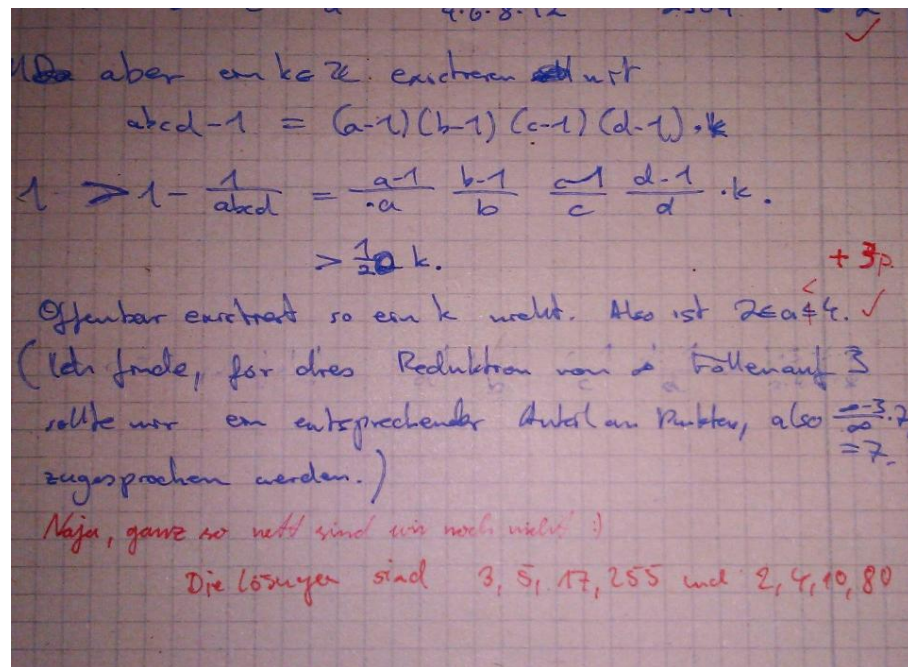 4·6·8·12
aber ein k∈ℤ existieren mit
abcd-1 = (a-1)(b-1)(c-1)(d-1)·k
1 > 1 - 1/abcd = a-1/a b-1/b c-1/c d-1/d ·k.
> 1/2 k. + 3p.
Offenbar existiert so ein k nicht. Also ist 2≤a<4. ✓
(Ich finde, für dies Reduktion von ∞ Fällen auf 3
sollte mir ein entsprechender Anteil an Punkten, also ∞-3/∞ ·7
=7,
zugesprochen werden.)
Naja, ganz so nett sind wir noch nicht :)
Die Lösungen sind 3, 5, 17, 255 und 2, 4, 10, 80